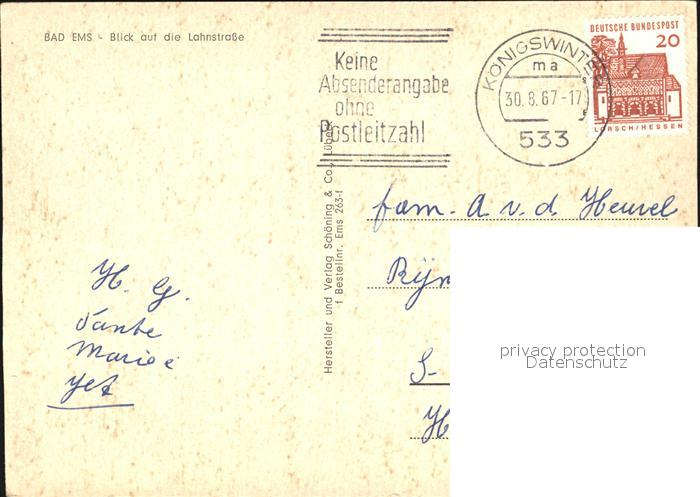 BAD EMS - Blick auf die Lahnstraße
Keine
Absenderangabe
ohne
Postleitzahl
KÖNIGSWINTER
ma
30.8.67-17
533
DEUTSCHE BUNDESPOST
20
LORSCH/HESSEN
Hersteller und Verlag Schöning & Co., Lübeck
f Bestellnr. Ems 263-f
fam. A. v. d. Heuvel
Rijn
S-
H
H. G.
Tante
Marie
Jet
privacy protection
Datenschutz